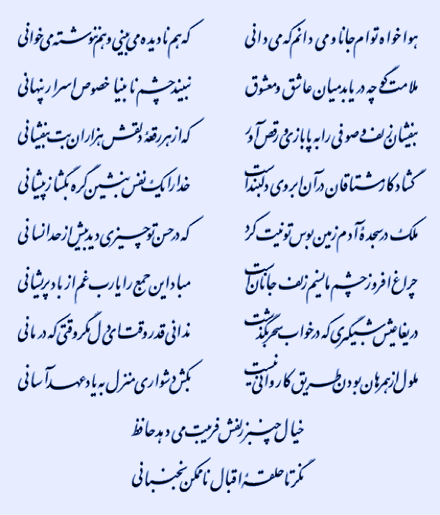 هواخواه توام جانا و می دانم که می دانی که هم نادیده می بینی و هم ننوشته می خوانی
ملامت گو چه دریابد میان عاشق و معشوق نبیند چشم نابینا خصوص اسرار پنهانی
بیفشان زلف و صوفی را به پابازی و رقص آور که از هر رقعه دلقش هزاران بت بیفشانی
گشاد کار مشتاقان در آن ابروی دلبند است خدا را یک نفس بنشین گره بگشا ز پیشانی
ملک در سجده آدم زمین بوس تو نیت کرد که در حسن تو چیزی دید بیش از حد انسانی
چراغ افروز چشم ما نسیم زلف جانان است مباد این جمع را یا رب غم از باد پریشانی
دریغا عیش شبگیری که در خواب سحر بگذشت ندانی قدر وقت ای دل مگر وقتی که درمانی
ملول از همرهان بودن طریق کاروانی نیست بکش دشواری منزل به یاد عهد آسانی
خیال چنبر زلفش فریبت می دهد حافظ
نگر تا حلقه اقبال ناممکن نجنبانی